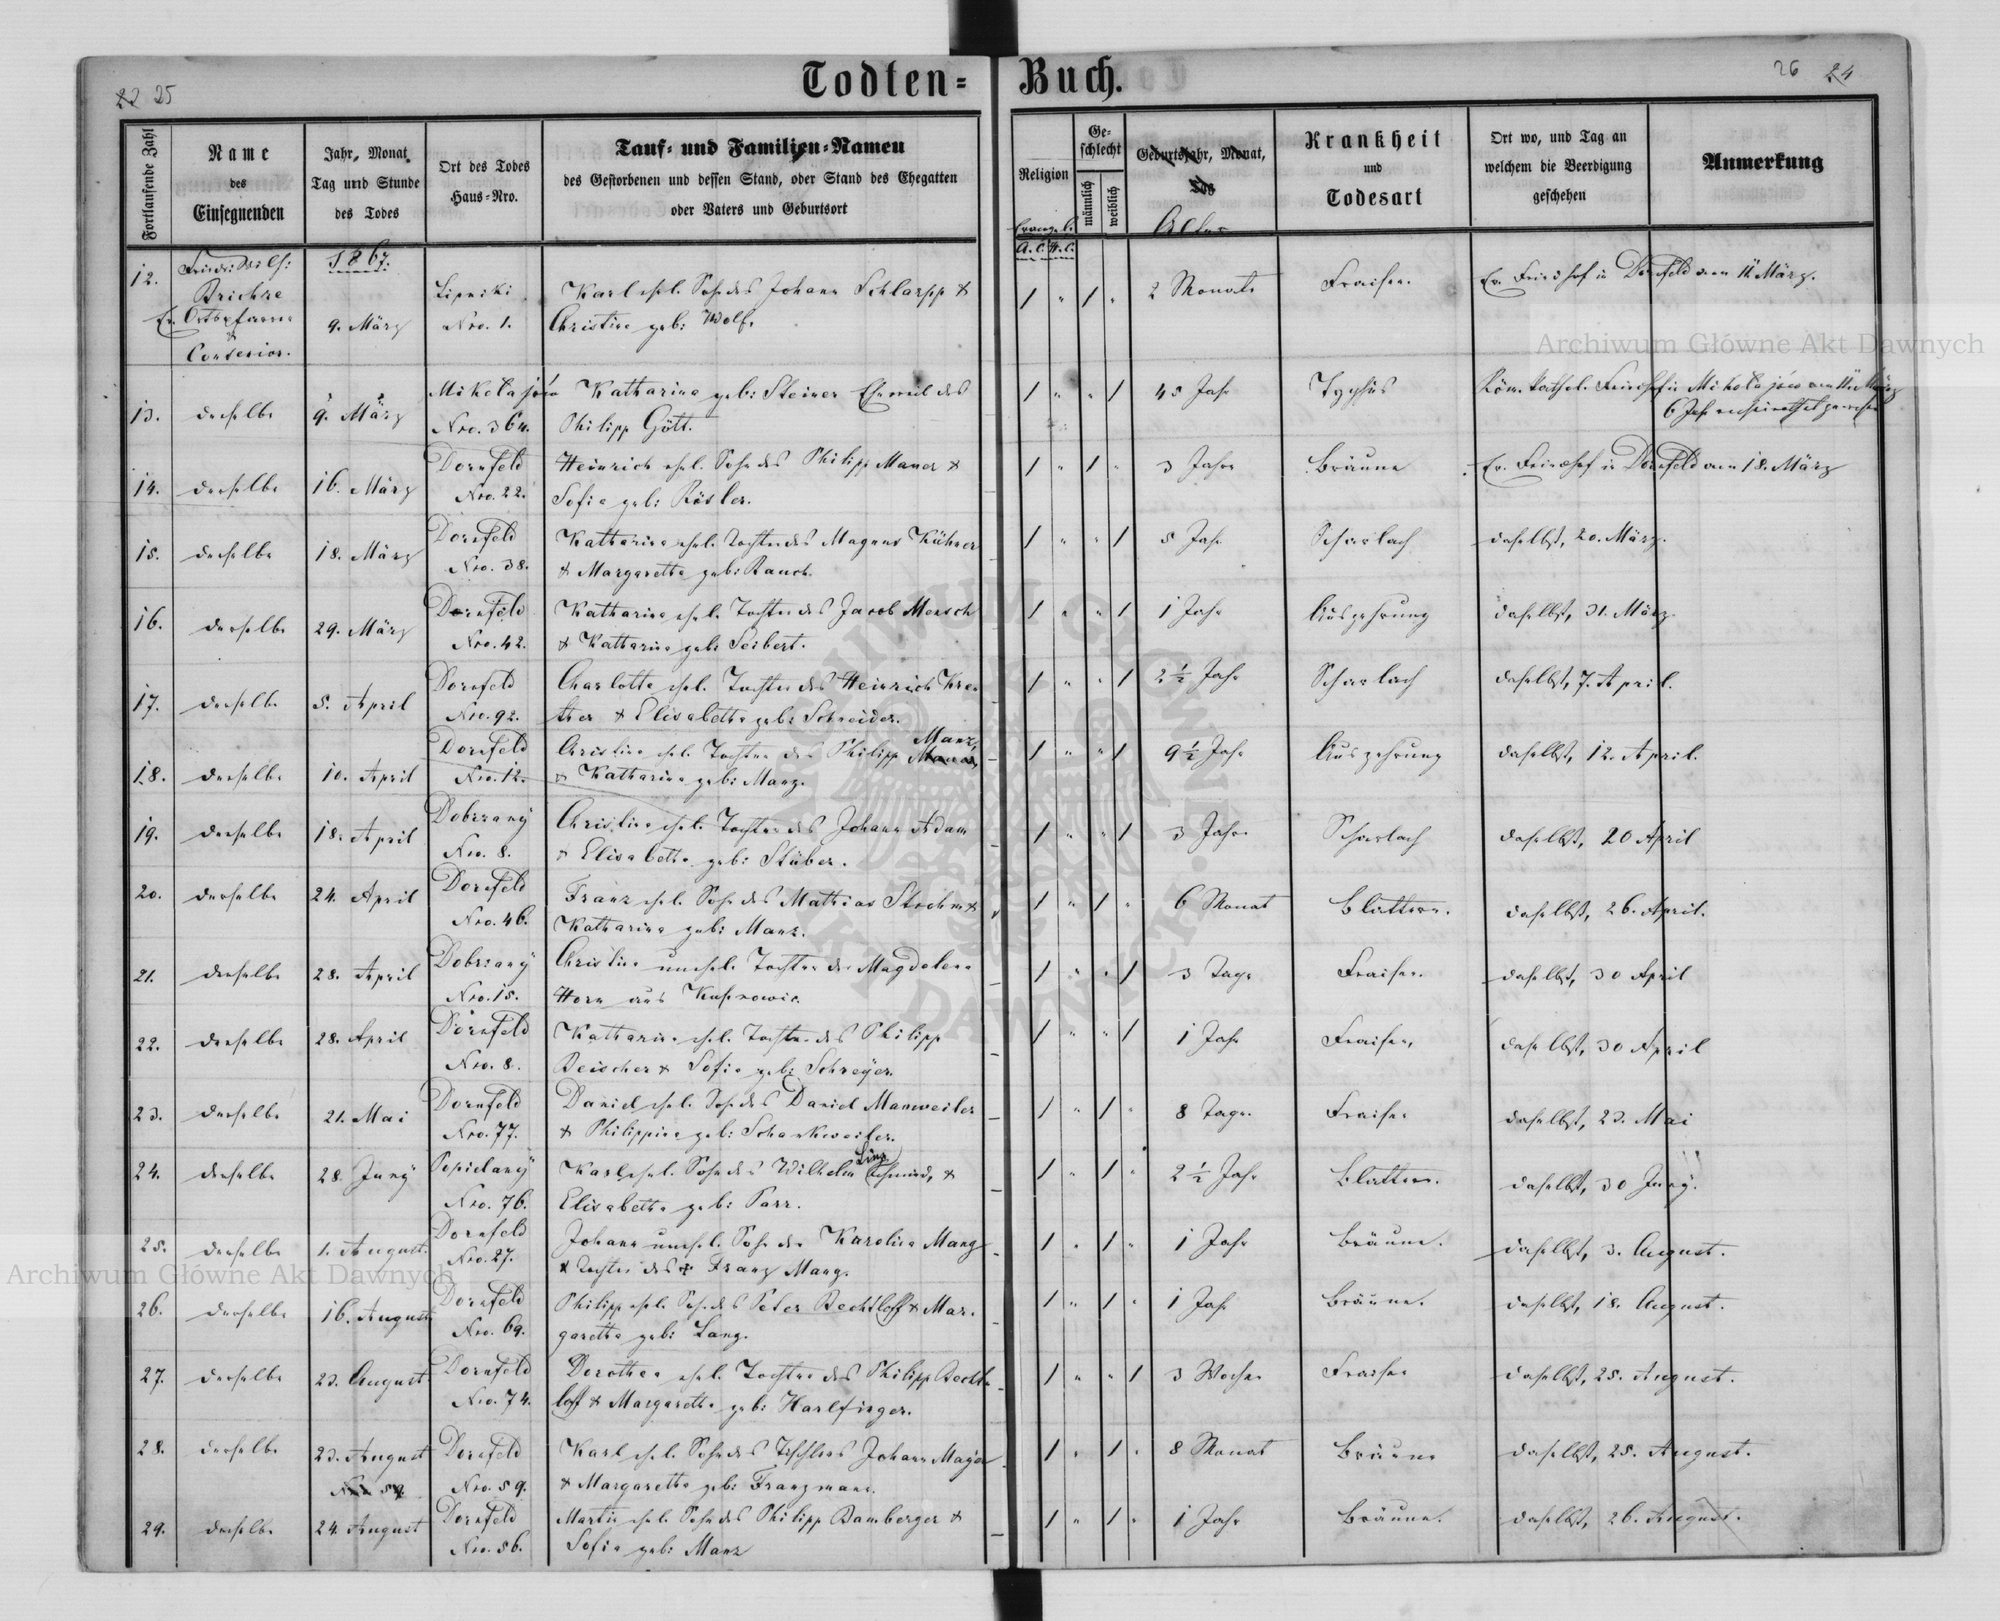 Todten-Buch.
22 25
26 24
Fortlaufende Zahl
Name
des
Einsegnenden
Jahr, Monat
Tag und Stunde
des Todes
Ort des Todes
Haus-Nro.
Tauf- und Familien-Namen
des Gestorbenen und dessen Stand, oder Stand des Ehegatten
oder Vaters und Geburtsort
Religion
Evangel.
A.C. H.C.
Ge-
schlecht
männlich
weiblich
Geburtsjahr, Monat,
Alter
Krankheit
und
Todesart
Ort wo, und Tag an
welchem die Beerdigung
geschehen
Anmerkung
1867.
12. Ev. Ortspfarrer & Consenior. 9. März Lipniki Nro. 1. Karl ehel. Sohn des Johann Schlarpp &
Christine geb: Wolf. 1 " 1 " 2 Monate Fraisen. Ev. Friedhof in Dornfeld am 11 März.
13. derselbe 9. März Mikołajów Nro. 364. Katharina geb: Steiner Eheweib des
Philipp Gött. 1 " " 1 45 Jahr Typhus Röm. kathol. Friedhof in Mikołajów am 11. März
6 Jahr verheirathet gewesen
14. derselbe 16. März Dornfeld Nro. 22. Heinrich ehel. Sohn des Philipp Maner &
Sofia geb: Rösler. 1 " 1 " 3 Jahre Bräune Ev. Friedhof in Dornfeld am 18. März
15. derselbe 18. März Dornfeld Nro. 38. Katharina ehel. Tochter des Magnus Kühner
& Margaretha geb: Rauch. 1 " " 1 5 Jahr Scharlach daselbst, 20. März.
16. derselbe 29. März Dornfeld Nro. 42. Katharina ehel. Tochter des Jacob Mensch
& Katharina geb: Seibert. 1 " " 1 1 Jahr Auszehrung daselbst, 31. März.
17. derselbe 5. April Dornfeld Nro. 92. Charlotte ehel. Tochter des Heinrich Kre-
ther & Elisabetha geb: Schneider. 1 " " 1 2 ½ Jahr Scharlach daselbst, 7. April.
18. derselbe 10. April Dornfeld Nro. 12. Christine ehel. Tochter des Philipp Manz,
& Katharina geb: Manz. 1 " " 1 9 ½ Jahr Auszehrung daselbst, 12. April.
19. derselbe 18. April Dobrzany Nro. 8. Christine ehel. Tochter des Johann Adam
& Elisabetha geb: Stüber. 1 " " 1 3 Jahre Scharlach daselbst, 20 April
20. derselbe 24. April Dornfeld Nro. 46. Franz ehel. Sohn des Mathias Strohm &
Katharina geb: Manz. 1 " 1 " 6 Monat Blattern. daselbst, 26. April.
21. derselbe 28. April Dobrzany Nro. 15. Christine unehel. Tochter der Magdalena
Horn aus 1 " " 1 3 Tage Fraisen. daselbst, 30 April
22. derselbe 28. April Dornfeld Nro. 8. Katharina ehel. Tochter des Philipp
Beischer & Sofia geb: Schreyer. 1 " " 1 1 Jahr Fraisen, daselbst, 30 April
23. derselbe 21. Mai Dornfeld Nro. 77. Daniel ehel. Sohn des Daniel Manweiler
& Philippine geb: Schankweiler. 1 " 1 " 8 Tage. Fraisen daselbst, 23. Mai
24. derselbe 28. Juny Popielany Nro. 76. Karl ehel. Sohn des Wilhelm Schmied, &
Elisabetha geb: Parr. 1 " 1 " 2 ½ Jahr Blattern. daselbst, 30 Juny.
25. derselbe 1. August. Dornfeld Nro. 27. Johann unehel. Sohn der Karolina Mang
& Tochter des + Franz Mang. 1 " 1 " 1 Jahr Bräune. daselbst, 3. August.
26. derselbe 16. August. Dornfeld Nro. 69. Philipp ehel. Sohn des Peter Bechtloff & Mar-
garetha geb: Lang. 1 " 1 " 1 Jahr Bräune. daselbst, 18. August.
27. derselbe 23. August Dornfeld Nro. 74. Dorothea ehel. Tochter des Philipp Becht-
loff & Margaretha geb: Harlfinger. 1 " " 1 3 Wochen Fraisen daselbst, 25. August.
28. derselbe 23. August Dornfeld Nro. 59. Karl ehel. Sohn des Tischlers Johann Mayer
& Margaretha geb: Franzmann. 1 " 1 " 8 Monat Bräune daselbst, 25. August.
29. derselbe 24. August Dornfeld Nro. 56. Martin ehel. Sohn des Philipp Bamberger &
Sofia geb: Manz 1 " 1 " 1 Jahr Bräune. daselbst, 26. August.
Archiwum Główne Akt Dawnych
Archiwum Główne Akt Dawnych
ARCHIWUM GŁÓWNE AKT DAWNYCH